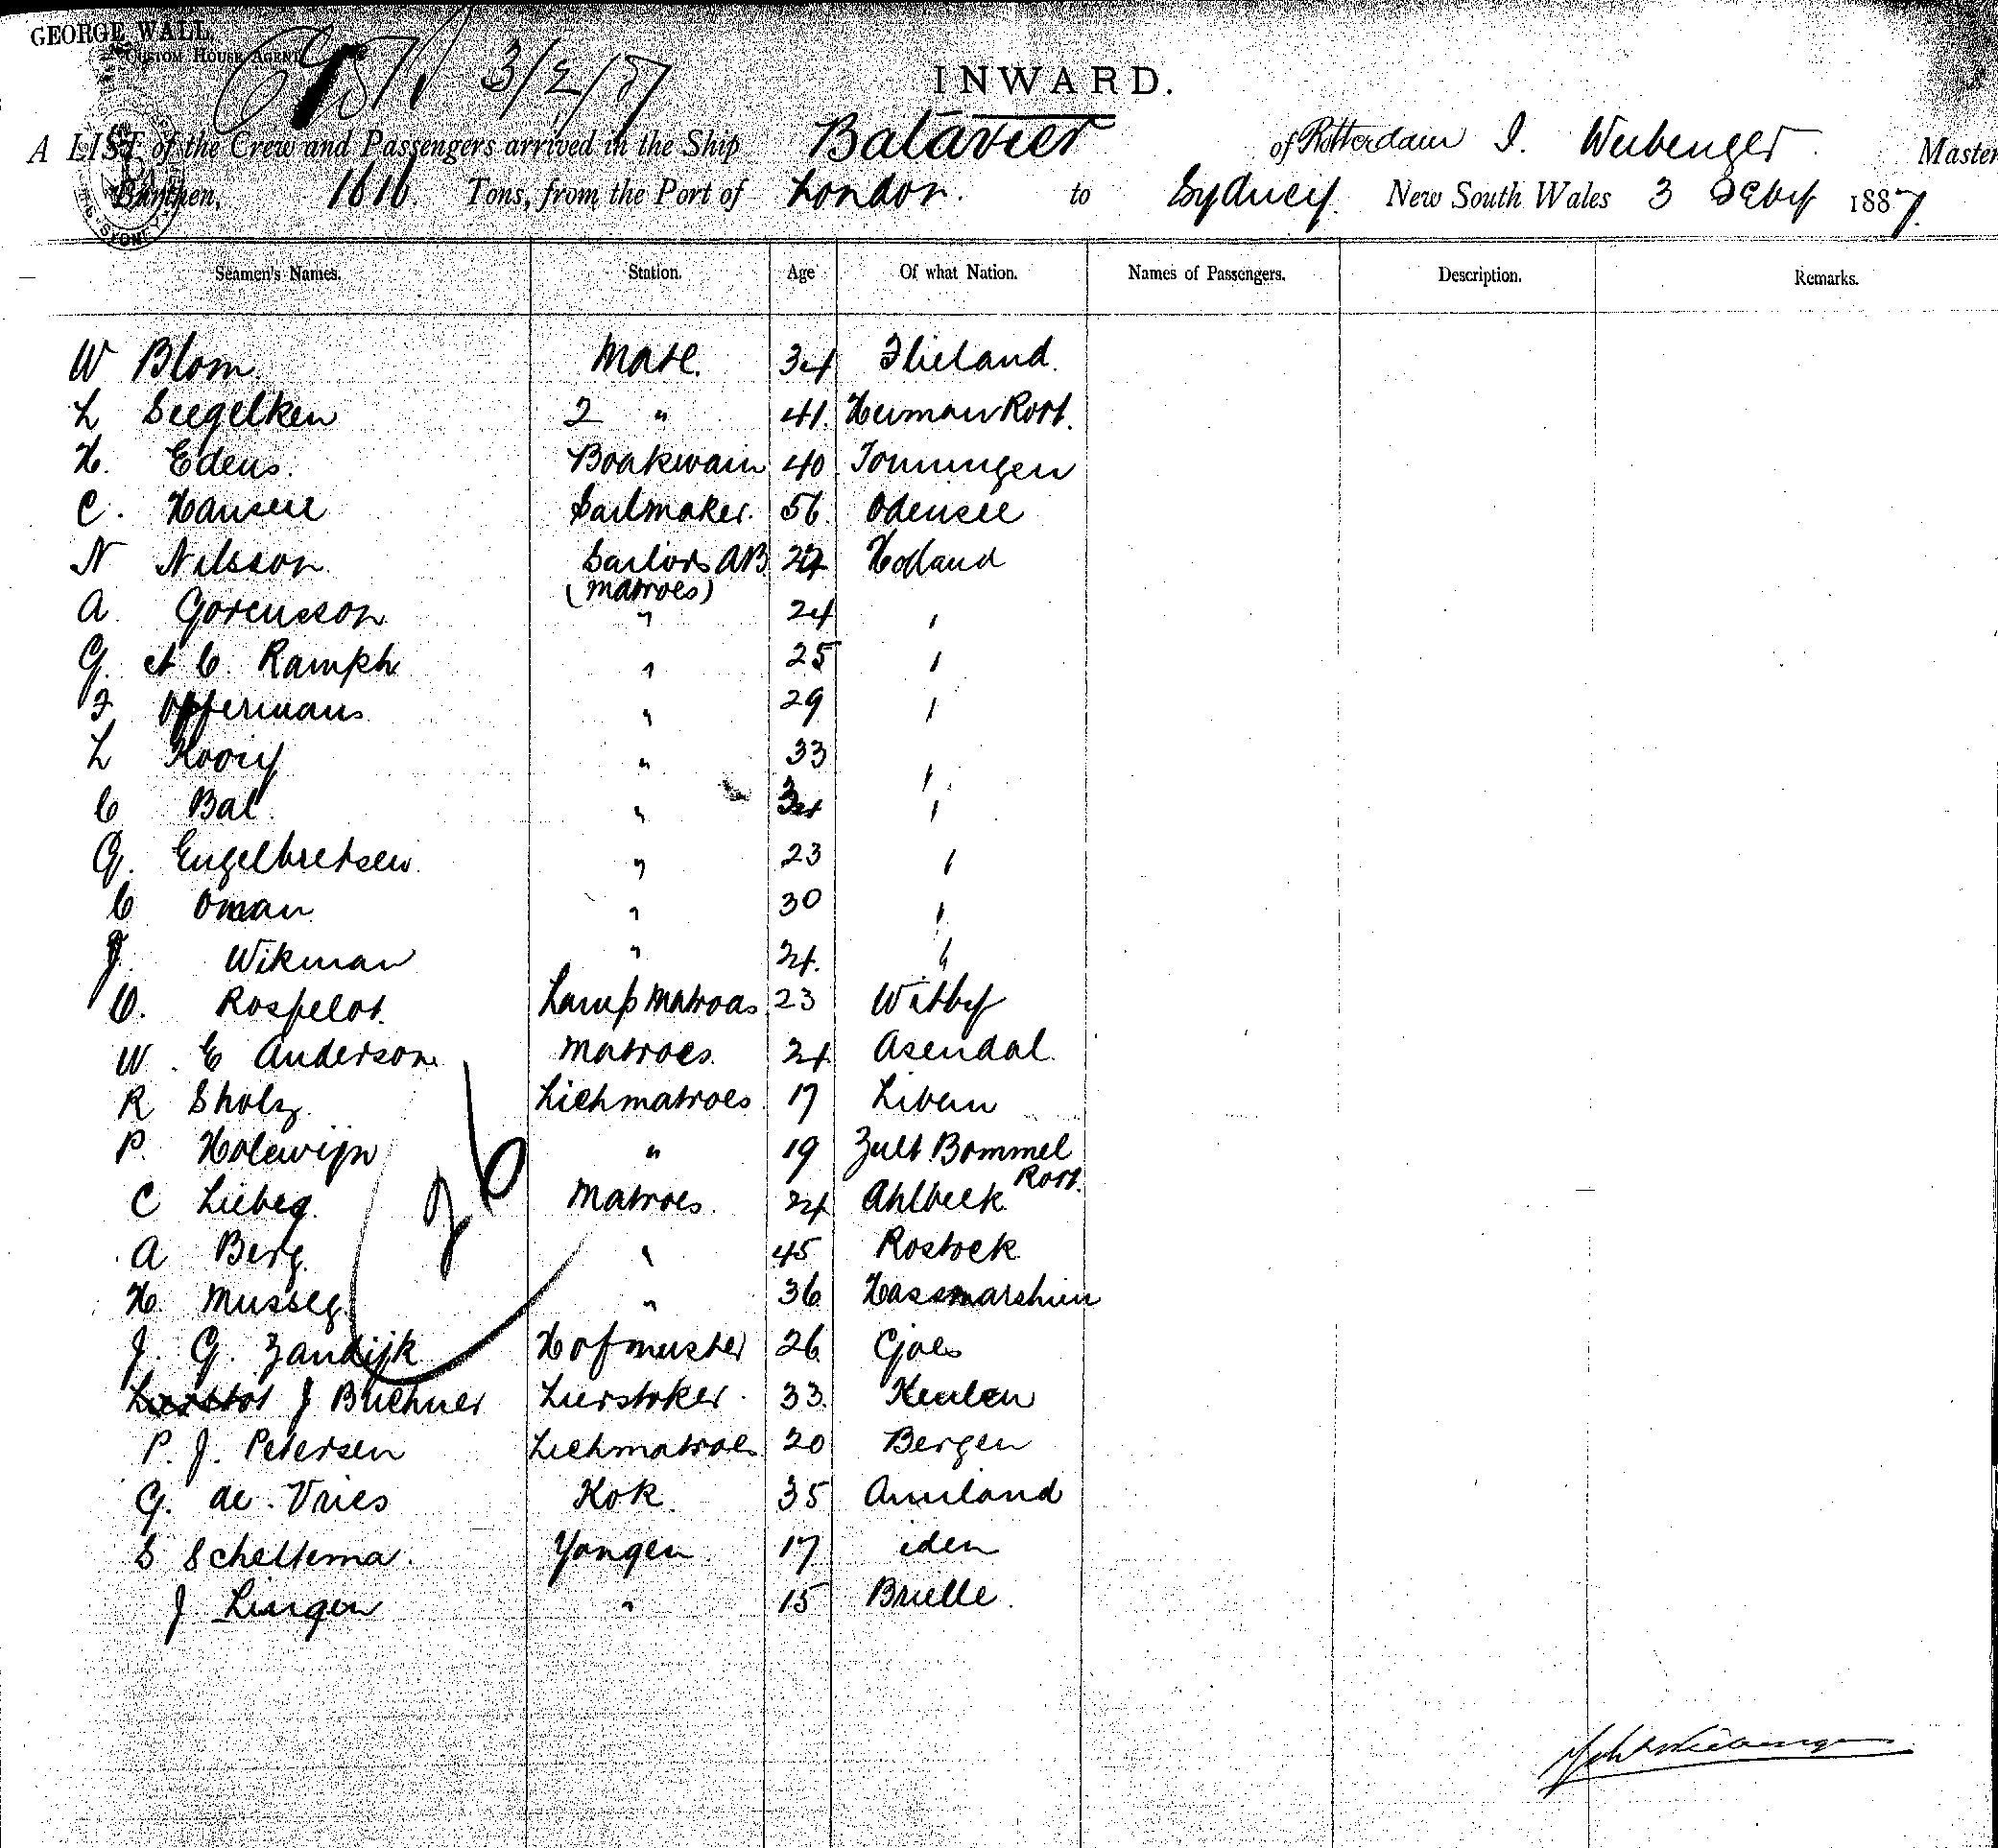 GEORGE WALL,
CUSTOM HOUSE AGENT
3/2/87
INWARD.
A LIST of the Crew and Passengers arrived in the Ship Batavier of Rotterdam I. Weibenger Master
Burthen, 1616 Tons, from the Port of London. to Sydney. New South Wales 3 Feby 1887.
Seamen's Names. Station. Age Of what Nation. Names of Passengers. Description. Remarks.
W Blom Mate. 34 Flieland.
L Seegelken 2 " 41. Rort.
H. Edens. 40 Tonningen
C. Hansen Sailmaker. 56. Odensee
N Nilsson Sailors AB 22 Holland
(matroes)
A. Gorensson " 24 "
G. et C. Ramph " 25 "
F Offermans " 29 "
L Kooiy " 33 "
C Bal " "
G. Engelbretsen " 23 "
C Oman " 30 "
J. Wikman " 24. "
O. Rospelot. Lamp Matroas 23 Witby
W. E Anderson Matroes. 24 Asendal.
R Sholz. Lichmatroes 17 Libau
P. Holewijn " 19 Zult Bommel
Rort.
C Liebeg. Matroes. 24 Ahlbeck
A Berg. " 45 Rostock
H. Musseg. " 36
J. G. Zandijk Hofmuster 26 Goes
J Buchner Lierstoker. 33. Keulen
P. J. Petersen Lichmatroes 20 Bergen
G. de Vries Kok. 35 Ameland
S Scheltema. Yongen 17 iden
J Lingen " 15 Brielle.
26